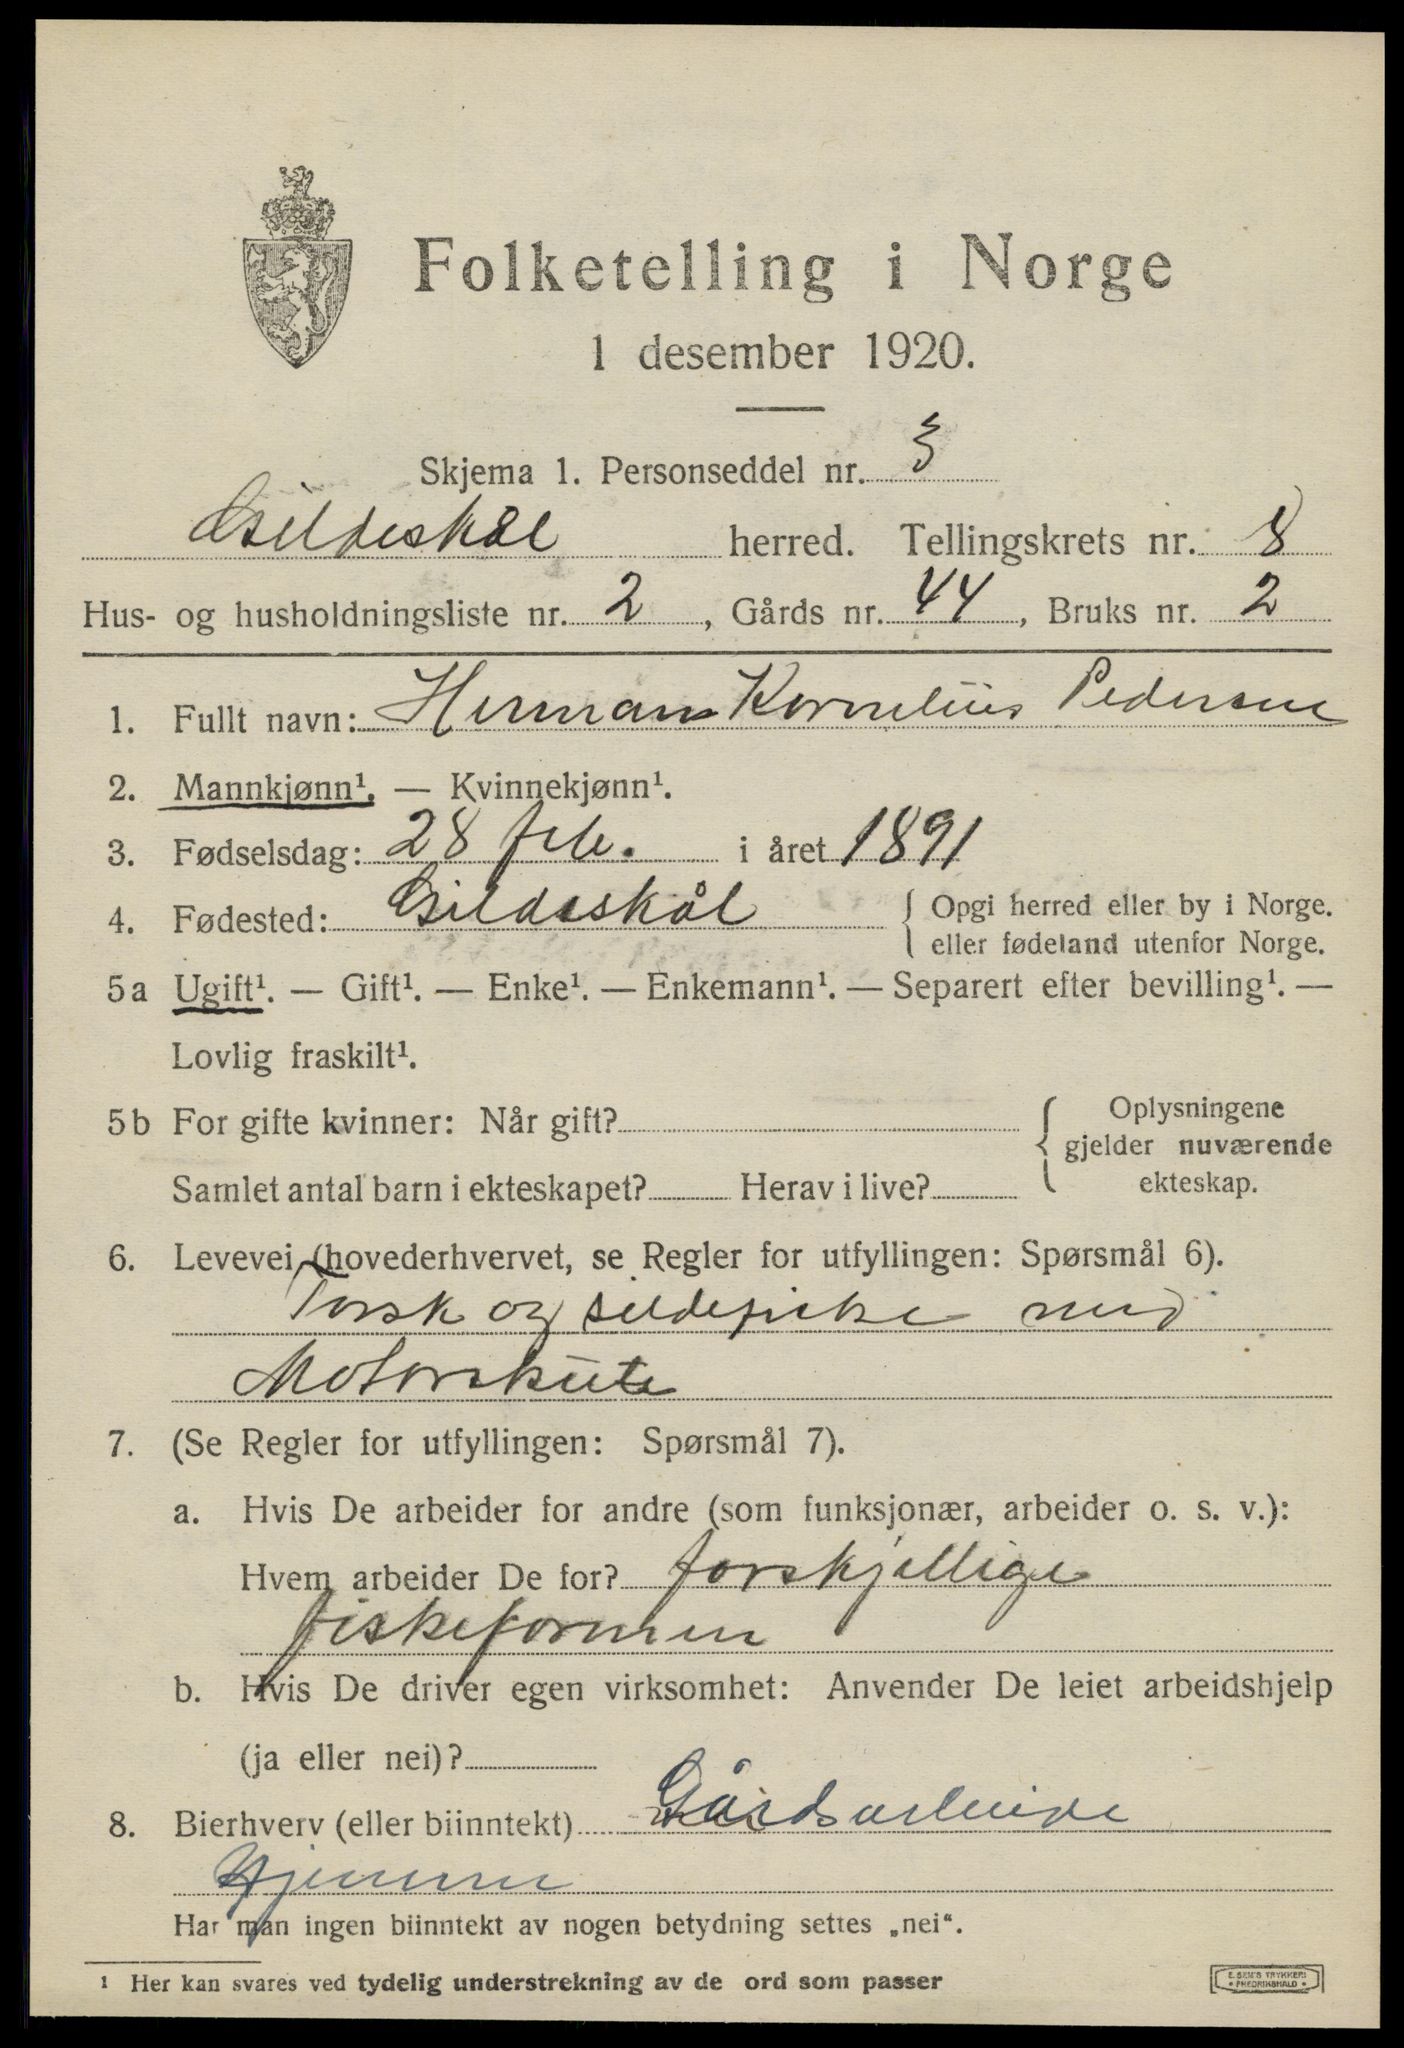 Folketelling i Norge
1 desember 1920.
Skjema 1. Personseddel nr. 3
Gildeskål herred. Tellingskrets nr. 8
Hus- og husholdningsliste nr. 2, Gårds nr. 44, Bruks nr. 2
1. Fullt navn: Herman Kornelius Pedersen
2. Mannkjønn¹. — Kvinnekjønn¹.
3. Fødselsdag: 28 feb. i året 1891
4. Fødested: Gildeskål { Opgi herred eller by i Norge.
eller fødeland utenfor Norge.
5a Ugift¹. — Gift¹. — Enke¹. — Enkemann¹. — Separert efter bevilling¹. —
Lovlig fraskilt¹.
5b For gifte kvinner: Når gift? { Oplysningene
gjelder nuværende
Samlet antal barn i ekteskapet? Herav i live? ekteskap.
6. Levevei (hovederhvervet, se Regler for utfyllingen: Spørsmål 6).
Torsk og sildefiske med
Motorskute
7. (Se Regler for utfyllingen: Spørsmål 7).
a. Hvis De arbeider for andre (som funksjonær, arbeider o. s. v.):
Hvem arbeider De for? forskjellige
fiskeformen
b. Hvis De driver egen virksomhet: Anvender De leiet arbeidshjelp
(ja eller nei)?
8. Bierhverv (eller biinntekt) Gårdsarbeide
Hjemme
Har man ingen biinntekt av nogen betydning settes „nei“.
¹ Her kan svares ved tydelig understrekning av de ord som passer
E. SEM'S TRYKKERI
• FREDRIKSHALD •